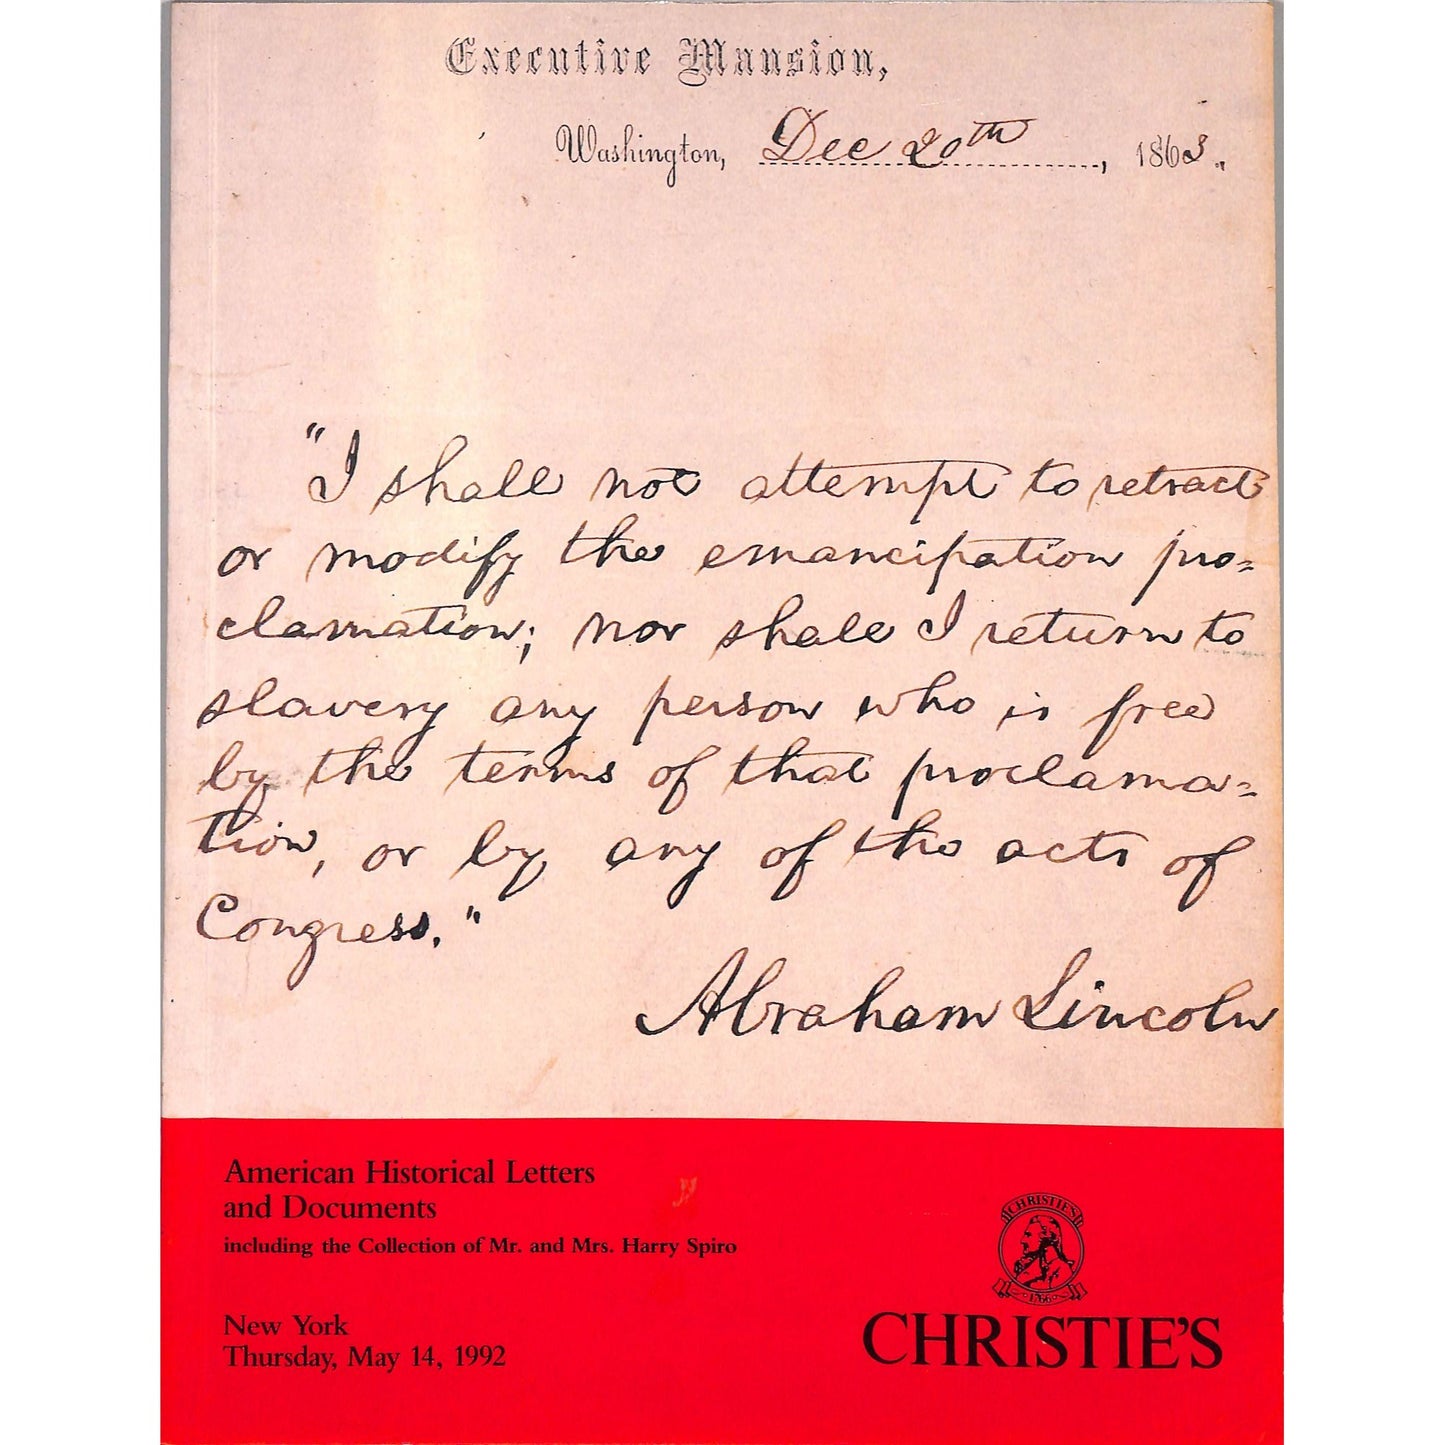 Executive Mansion,
Washington, Dec 20th, 1863.
"I shall not attempt to retract
or modify the emancipation pro=
clamation; nor shall I return to
slavery any person who is free
by the terms of that proclama=
tion, or by any of the acts of
Congress."
Abraham Lincoln
American Historical Letters
and Documents
including the Collection of Mr. and Mrs. Harry Spiro
New York
Thursday, May 14, 1992
CHRISTIE'S
1766
CHRISTIE'S